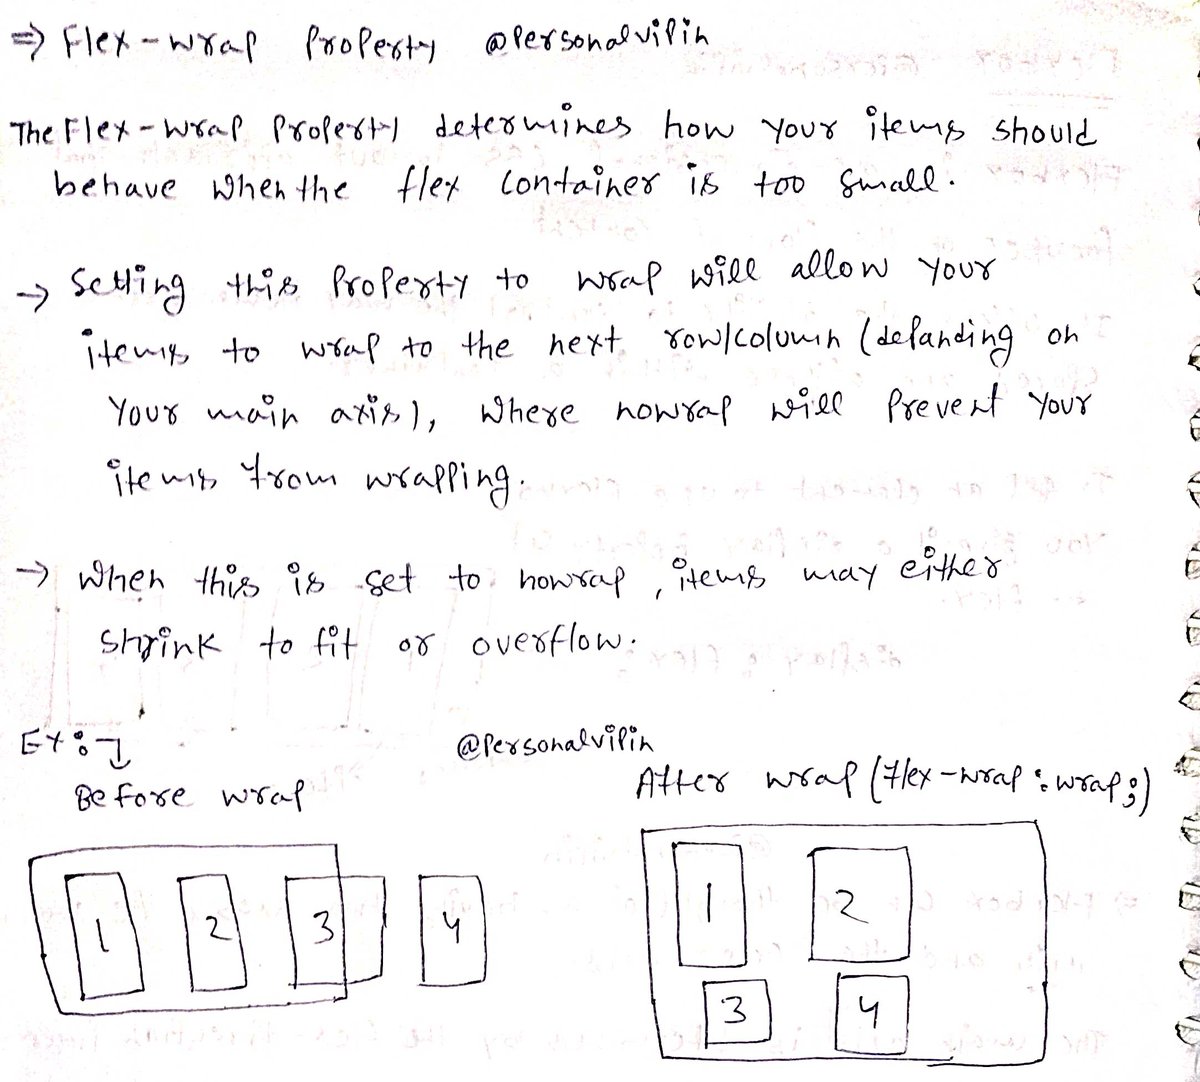 ⇒ Flex-wrap Property @Personalvipin
The Flex-wrap Property determines how your items should
behave when the flex container is too small.
→ Setting this Property to wrap will allow your
items to wrap to the next row/column (depanding on
your main axis), where nowrap will Prevent your
items from wrapping.
→ When this is set to nowrap, items may either
shrink to fit or overflow.
Ex:- ↓
@Personalvipin
Before wrap
After wrap (flex-wrap: wrap;)
1 2 3 4
1 2
3 4